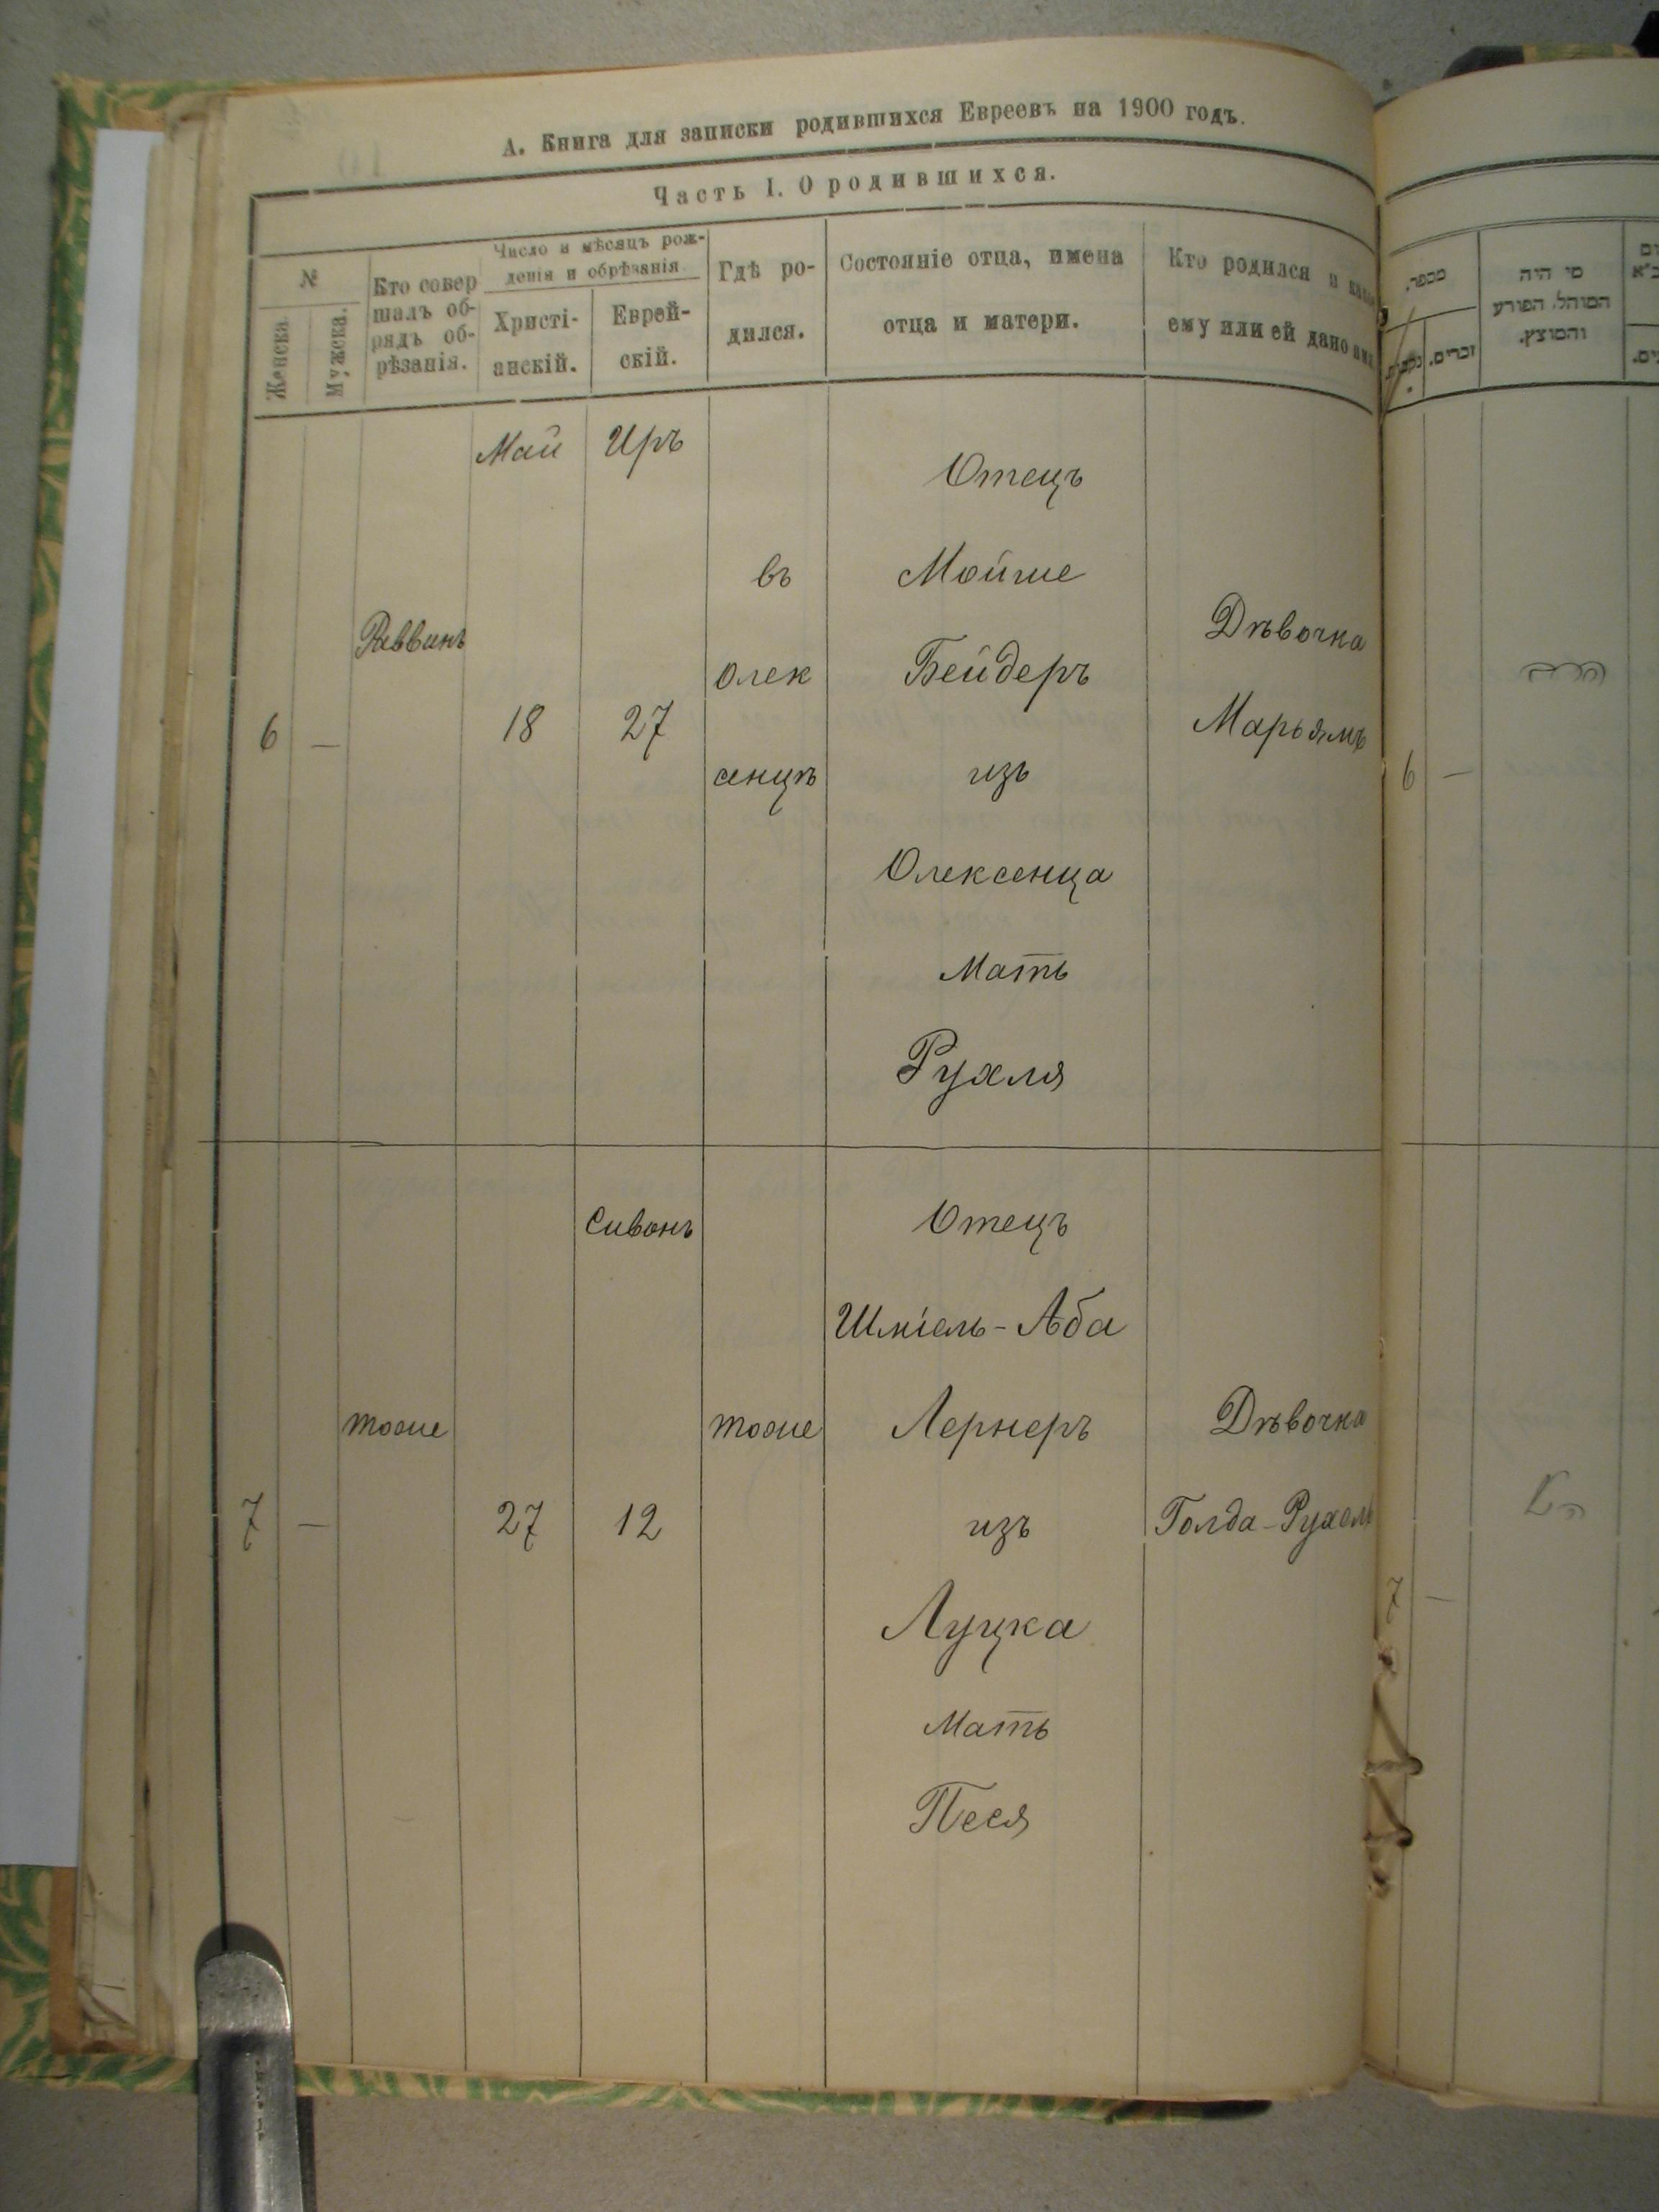 А. Книга для записки родившихся Евреевъ на 1900 годъ.
Часть I. О родившихся.
№
Женска.
Мужска.
Кто совер
шалъ об-
рядъ об-
рѣзанія.
Число и мѣсяцъ рож-
денія и обрѣзанія
Христі-
анскій.
Еврей-
скій.
Гдѣ ро-
дился.
Состояніе отца, имена
отца и матери.
Кто родился и какое
ему или ей дано имя
Май
Иръ
6
—
Раввинъ
18
27
въ
Олек
сенцѣ
Отецъ
Мойше
Бейдеръ
изъ
Олексенца
Мать
Рухля
Дѣвочка
Марьямъ
Сивонъ
7
—
тоже
27
12
тоже
Отецъ
Шміель-Аба
Лернеръ
изъ
Луцка
Мать
Песя
Дѣвочка
Голда-Рухель
מספר.
זכרים.
מי היה
המוהל. הפורע
והמוצץ.
6
—
7
—